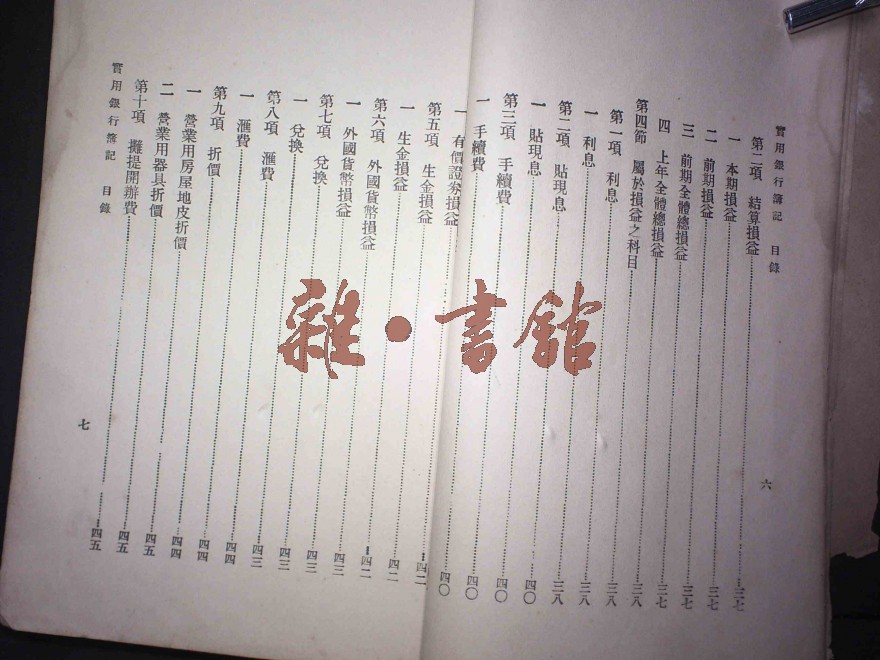 實用銀行簿記 目錄
第二項 結算損益 三七
一 本期損益 三七
二 前期損益 三七
三 前期全體總損益 三七
四 上年全體總損益 三七
第四節 屬於損益之科目 三八
第一項 利息 三八
一 利息 三八
第二項 貼現息 三八
一 貼現息 四〇
第三項 手續費 四〇
一 手續費 四〇
六
一 有價證券損益 四〇
第五項 生金損益 四二
一 生金損益 四二
第六項 外國貨幣損益 四二
一 外國貨幣損益 四三
第七項 兌換 四三
一 兌換 四三
第八項 滙費 四三
一 滙費 四四
第九項 折價 四四
一 營業用房屋地皮折價 四四
二 營業用器具折價 四五
第十項 攤提開辦費 四五
實用銀行簿記 目錄
七
雜·書館